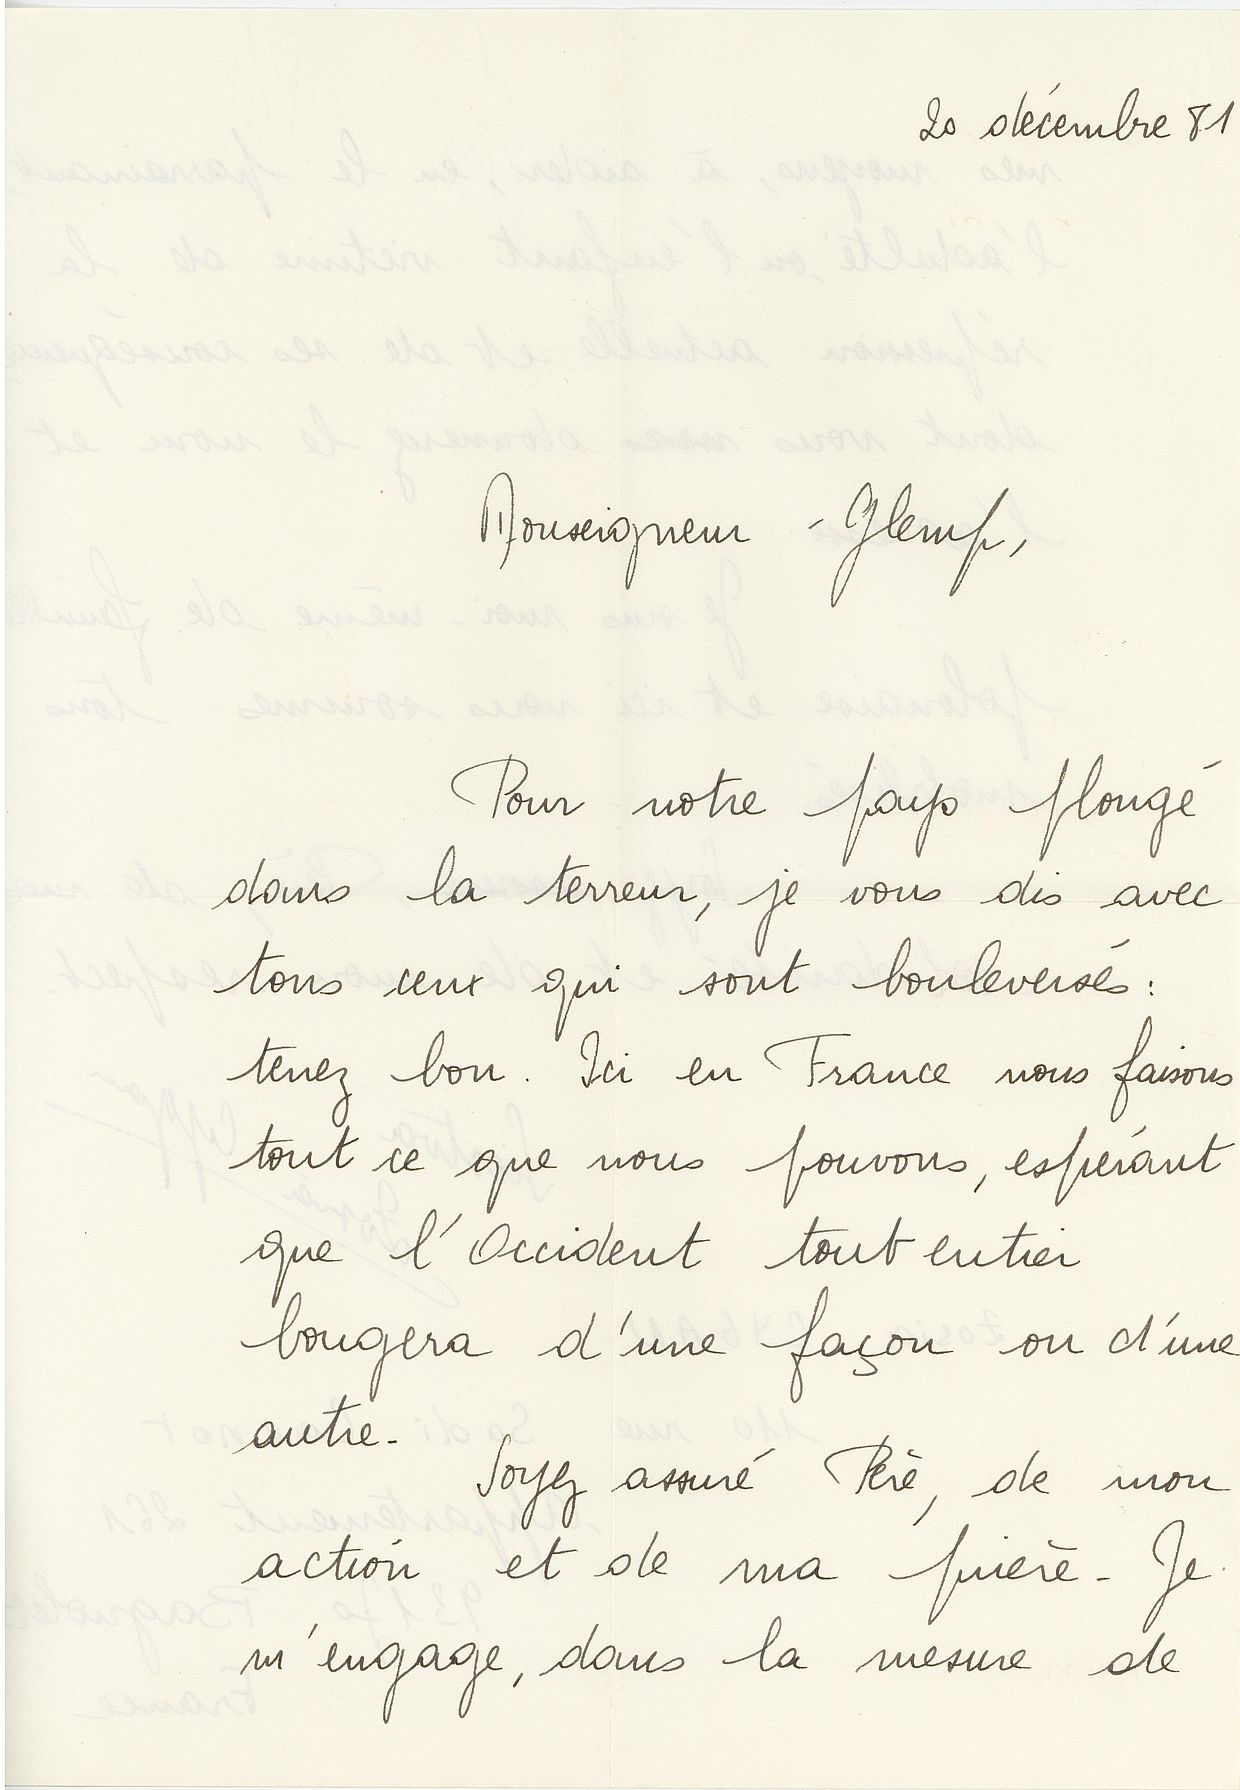 20 décembre 81
Monseigneur - Glemp,
Pour notre pays plongé
dans la terreur, je vous dis avec
tous ceux qui sont bouleversés :
tenez bon. Ici en France nous faisons
tout ce que nous pouvons, espérant
que l'Occident tout entier
bougera d'une façon ou d'une
autre.
Soyez assuré Père, de mon
action et de ma prière. Je
m'engage, dans la mesure de